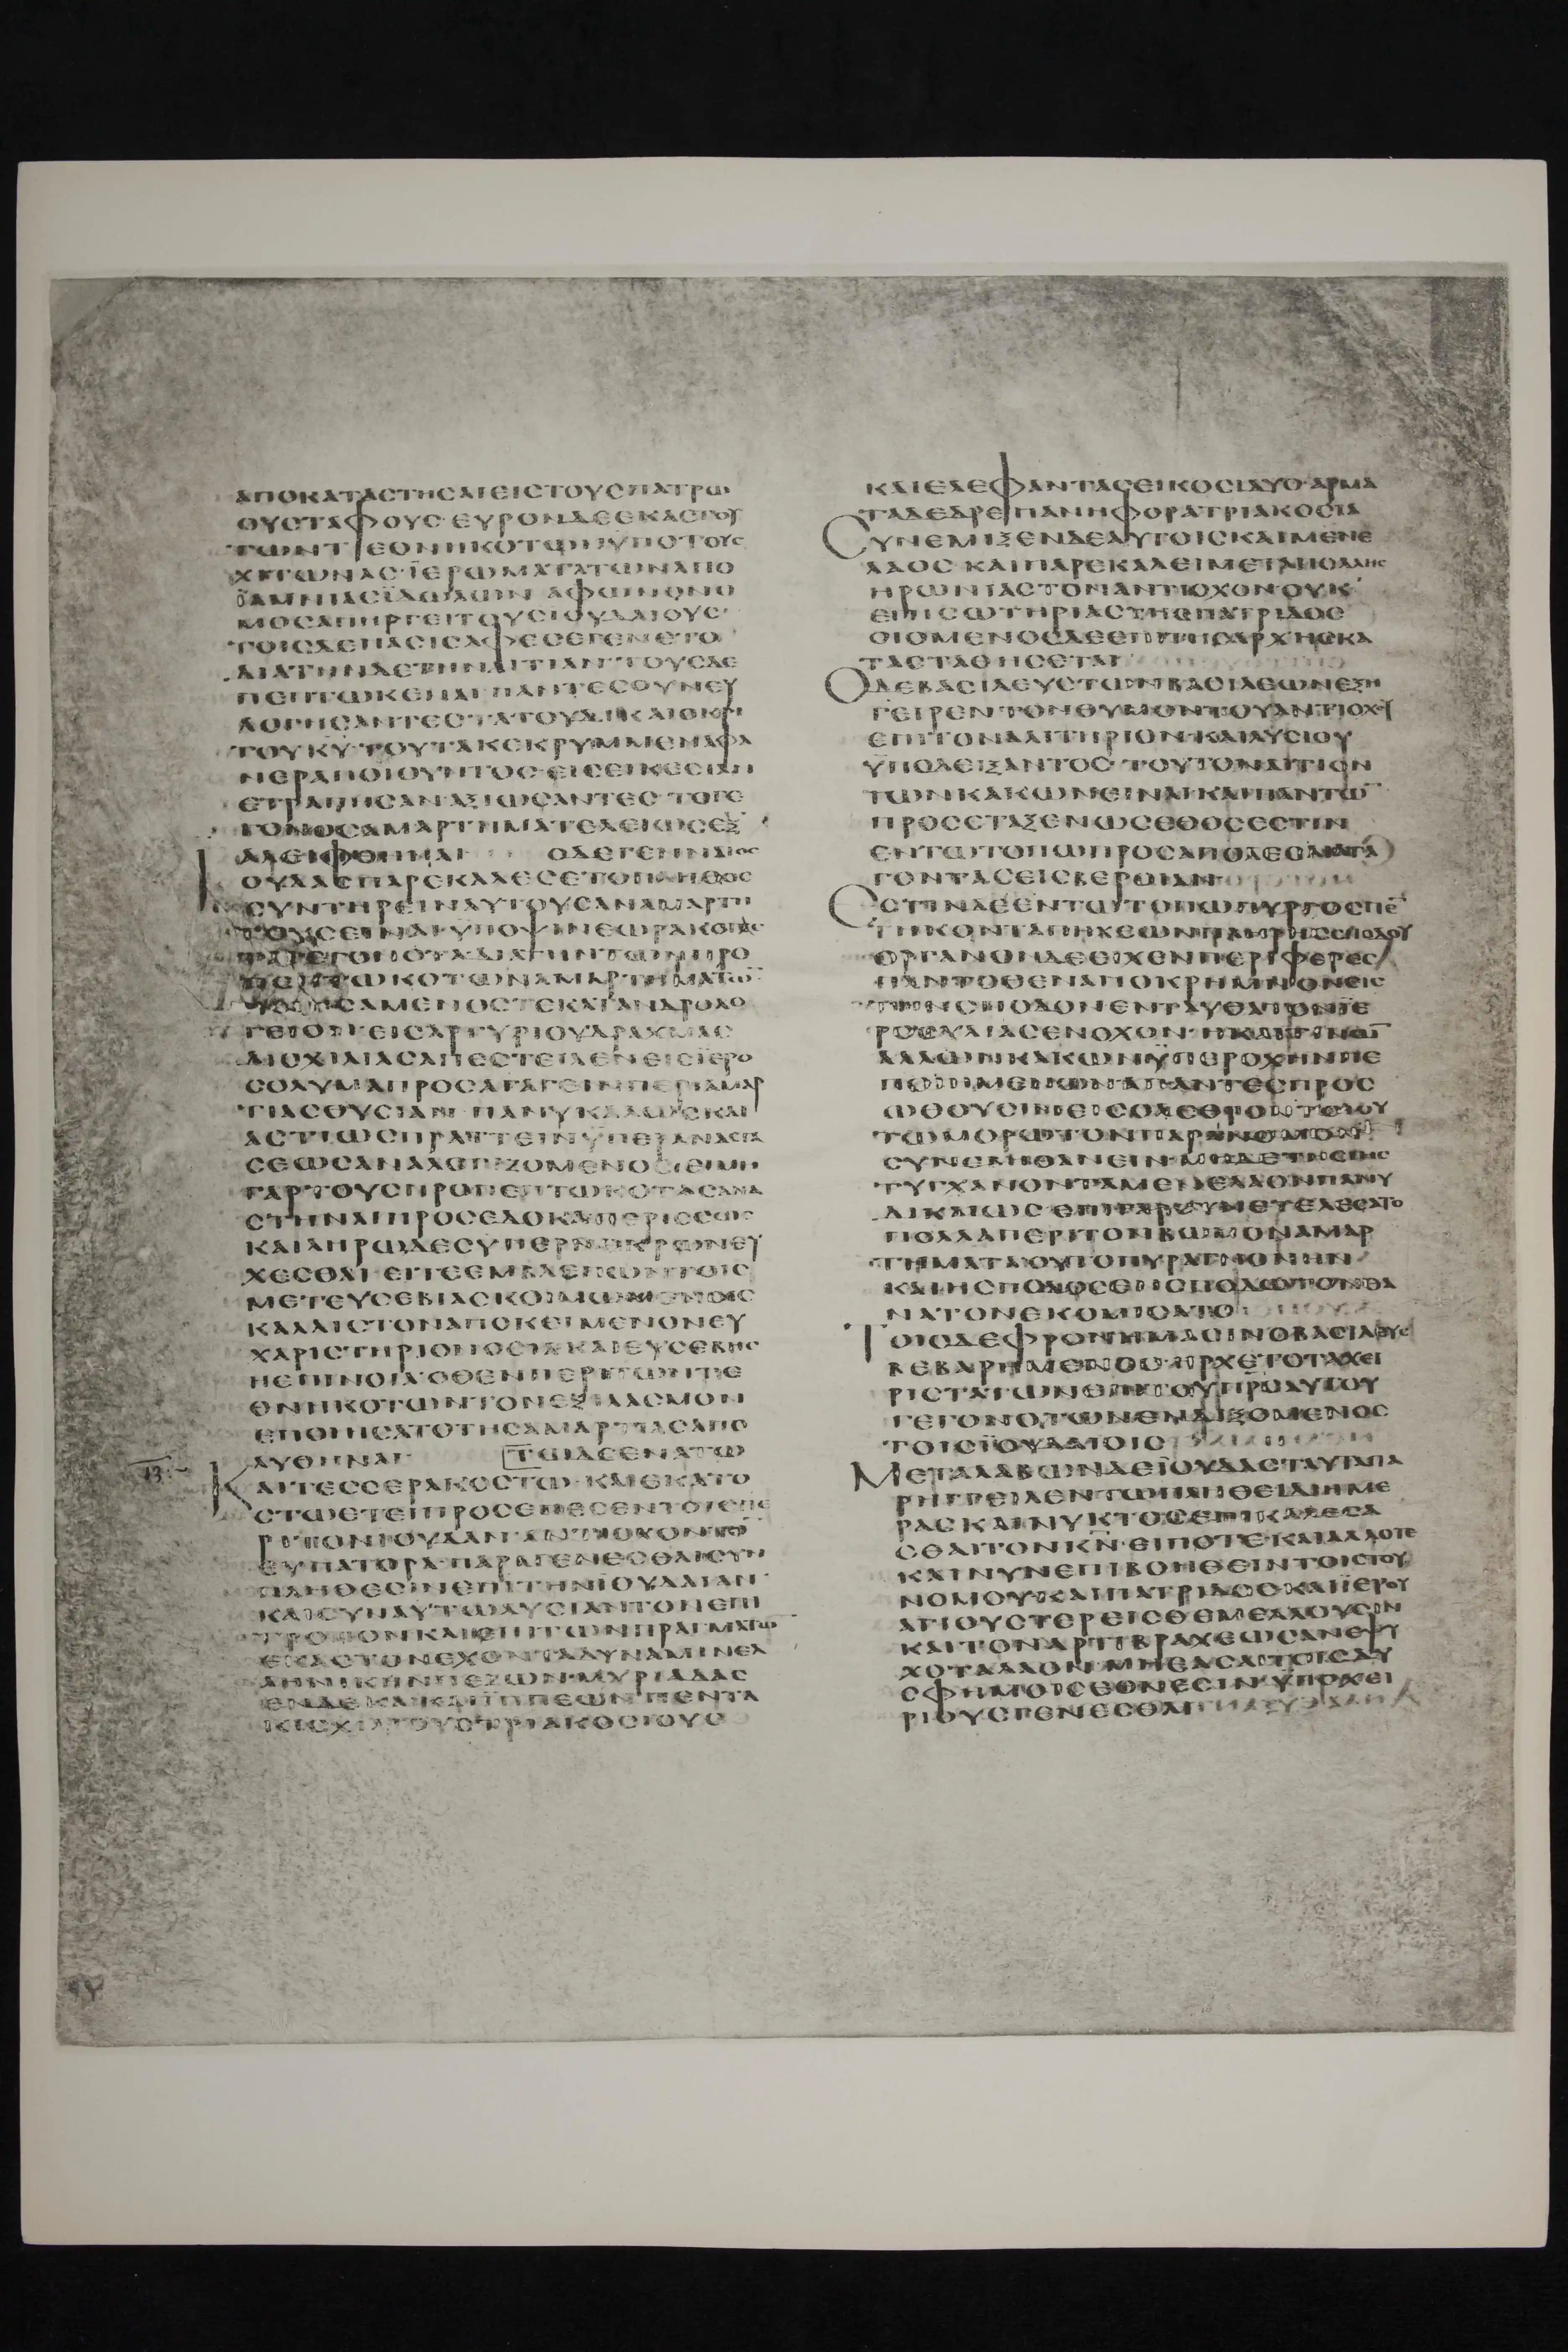 ΑΠΟΚΑΤΑCΤΗCΑΙΕΙCΤΟΥCΠΑΤΡΩ
ΟΥCΤΑΦΟΥC·ΕΥΡΟΝΔΕΕΚΑCΤΟΥ
ΤΩΝΤΕΘΝΗΚΟΤΩΝΥΠΟΤΟΥC
ΧΙΤΩΝΑC·ΪΕΡΩΜΑΤΑΤΩΝΑΠΟ
ΪΑΜΝΙΑCΪΔΩΛΩΝ ΑΦΩΝΟΝΟ
ΜΟCΑΠΙΡΓΕΙΤΟΥCΙΟΥΔΑΙΟΥC·
ΤΟΙCΔΕΠΑCΙCΑΦΕCΕΓΕΝΕΤΟ
ΔΙΑΤΗΝΔΕΤΗΝΑΙΤΙΑΝΤΟΥCΔΕ
ΠΕΠΤΩΚΕΝΑΙ ΠΑΝΤΕCΟΥΝΕΥ
ΛΟΓΗCΑΝΤΕCΤΑΤΟΥΔΙΚΑΙΟΚΡΙ
ΤΟΥΚΥ·ΤΟΥΤΑΚΕΚΡΥΜΜΕΝΑΦΑ
ΝΕΡΑΠΟΙΟΥΝΤΟC·ΕΙCΕΙΚΕCΙΑΝ
ΕΤΡΑΠΗCΑΝΑΞΙΩCΑΝΤΕC·ΤΟΓΕ
ΓΟΝΟCΑΜΑΡΤΗΜΑΤΕΛΕΙΩCΕΞ
ΑΛΕΙΦΘΗΝΑΙ ΟΔΕΓΕΝΝΑΙΟC
ΙΟΥΔΑCΠΑΡΕΚΑΛΕCΕΤΟΠΛΗΘΟC
CΥΝΤΗΡΕΙΝΑΥΤΟΥCΑΝΑΜΑΡΤΗ
ΤΟΥCΕΙΝΑΙ·ΥΠΟΨΙΝΕΩΡΑΚΟΤΑC
ΤΑΓΕΓΟΝΟΤΑΔΙΑΤΗΝΤΩΝΠΡΟ
ΠΕΠΤΩΚΟΤΩΝΑΜΑΡΤΗΜΑΤΩ
CΑΜΕΝΟCΤΕΚΑΤΑΝΔΡΟΛΟ
ΓΕΙΟΝΕΙCΑΡΓΥΡΙΟΥΔΡΑΧΜΑC
ΔΙCΧΙΛΙΑCΑΠΕCΤΕΙΛΕΝΕΙCΪΕΡΟ
CΟΛΥΜΑΠΡΟCΑΓΑΓΕΙΝΠΕΡΙΑΜΑΡ
ΤΙΑCΘΥCΙΑΝ ΠΑΝΥΚΑΛΩCΚΑΙ
ΑCΤΙΩCΠΡΑΤΤΕΙΝΫΠΕΡΑΝΑCΤΑ
CΕΩCΑΝΑΛΟΓΙΖΟΜΕΝΟC·ΕΙΜΗ
ΓΑΡΤΟΥCΠΡΟΠΕΠΤΩΚΟΤΑCΑΝΑ
CΤΗΝΑΙΠΡΟCΕΔΟΚΑΠΕΡΙCCΩC
ΚΑΙΛΗΡΩΔΕCΥΠΕΡΝΕΚΡΩΝΕΥ
ΧΕCΘΑΙ·ΕΙΤΕΕΜΒΛΕΠΩΝΤΟΙC
ΜΕΤΕΥCΕΒΙΑCΚΟΙΜΩΜΕΝΟΙC
ΚΑΛΛΙCΤΟΝΑΠΟΚΕΙΜΕΝΟΝΕΥ
ΧΑΡΙCΤΗΡΙΟΝΟCΙΑΚΑΙΕΥCΕΒΗC
ΗΕΠΙΝΟΙΑ·ΟΘΕΝΠΕΡΙΤΩΝΤΕ
ΘΝΗΚΟΤΩΝΤΟΝΕΞΙΛΑCΜΟΝ
ΕΠΟΙΗCΑΤΟΤΗCΑΜΑΡΤΙΑCΑΠΟ
ΛΥΘΗΝΑΙ ΤΩΙΔΕΕΝΑΤΩ
ΚΑΙΤΕCCΕΡΑΚΟCΤΩ·ΚΑΙΕΚΑΤΟ
CΤΩΕΤΕΙΠΡΟCΕΠΕCΕΝΤΟΙCΠΕ
ΡΙΤΟΝΙΟΥΔΑΝ ΑΝΤΙΟΧΟΝΤΟ
ΕΥΠΑΤΟΡΑ·ΠΑΡΑΓΕΝΕCΘΑΙCΥΝ
ΠΛΗΘΕCΙΝΕΠΙΤΗΝΪΟΥΔΑΙΑΝ·
ΚΑΙCΥΝΑΥΤΩΛΥCΙΑΝΤΟΝΕΠΙ
ΤΡΟΠΟΝΚΑΙΕΠΙΤΩΝΠΡΑΓΜΑΤΩ
ΕΚΑCΤΟΝΕΧΟΝΤΑΔΥΝΑΜΙΝΕΛ
ΛΗΝΙΚΗΝΠΕΖΩΝ·ΜΥΡΙΑΔΑC
ΕΝΔΕΚΑ·ΚΑΙΪΠΠΕΩΝ·ΠΕΝΤΑ
ΚΙCΧΙΛΙΟΥCΤΡΙΑΚΟCΙΟΥC
ΚΑΙΕΛΕΦΑΝΤΑCΕΙΚΟCΙΔΥΟ·ΑΡΜΑ
ΤΑΔΕΔΡΕΠΑΝΗΦΟΡΑΤΡΙΑΚΟCΙΑ
CΥΝΕΜΙΞΕΝΔΕΑΥΤΟΙCΚΑΙΜΕΝΕ
ΛΑΟC·ΚΑΙΠΑΡΕΚΑΛΕΙΜΕΤΑΠΟΛΛΗC
ΗΡΩΝΙΑCΤΟΝΑΝΤΙΟΧΟΝ·ΟΥΚ
ΕΠΙCΩΤΗΡΙΑCΤΗCΠΑΤΡΙΔΟC
ΟΙΟΜΕΝΟCΔΕΕΠΙΤΗCΑΡΧΗCΚΑ
ΤΑCΤΑΘΗCΕΤΑΙ
ΟΔΕΒΑCΙΛΕΥCΤΩΝΒΑCΙΛΕΩΝΕΞΗ
ΓΕΙΡΕΝ·ΤΟΝΘΥΜΟΝΤΟΥΑΝΤΙΟΧΟΥ
ΕΠΙΤΟΝΑΛΙΤΗΡΙΟΝ·ΚΑΙΛΥCΙΟΥ
ΫΠΟΔΕΙΞΑΝΤΟC·ΤΟΥΤΟΝΑΙΤΙΟΝ
ΤΩΝΚΑΚΩΝΕΙΝΑΙ·ΚΑΙΠΑΝΤΩ
ΠΡΟCΕΤΑΞΕΝΩCΕΘΟCΕCΤΙΝ
ΕΝΤΩΤΟΠΩΠΡΟCΑΠΟΛΕCΑΙΑΓΑ
ΓΟΝΤΑCΕΙCΒΕΡΟΙΑΝ
ΕCΤΙΝΔΕΕΝΤΩΤΟΠΩΠΥΡΓΟCΠΕ
ΤΗΚΟΝΤΑΠΗΧΕΩΝΠΛΗΡΗCCΠΟΔΟΥ
ΟΡΓΑΝΟΝΔΕΕΙΧΕΝΠΕΡΙΦΕΡΕC
ΠΑΝΤΟΘΕΝΑΠΟΚΡΗΜΝΟΝΕΙC
ΤΗΝCΠΟΔΟΝΕΝΤΑΥΘΑΤΟΝΪΕ
ΡΟCΥΛΙΑCΕΝΟΧΟΝ·ΗΚΑΙΤΙΝΩ
ΑΛΛΩΝΚΑΚΩΝΫΠΕΡΟΧΗΝΠΕ
ΠΟΙΗΜΕΝΟΝΑΠΑΝΤΕCΠΡΟC
ΩΘΟΥCΙΝΕΙCΟΛΕΘΡΟΝΤΟΙΟΥ
ΤΩΜΟΡΩΤΟΝΠΑΡΑΝΟΜΟΝ
CΥΝΕΒΗΘΑΝΕΙΝ·ΜΗΔΕΤΗCΓΗC
ΤΥΓΧΑΝΟΝΤΑΜΕΝΕΛΑΟΝΠΑΝΥ
ΔΙΚΑΙΩC·ΕΠΙΓΑΡCΥΝΕΤΕΛΕCΑΤΟ
ΠΟΛΛΑΠΕΡΙΤΟΝΒΩΜΟΝΑΜΑΡ
ΤΗΜΑΤΑΟΥΤΟΠΥΡΑΓΝΟΝΗΝ
ΚΑΙΗCΠΟΔΟCΕΝCΠΟΔΩΤΟΝΘΑ
ΝΑΤΟΝΕΚΟΜΙCΑΤΟ
ΤΟΙCΔΕΦΡΟΝΗΜΑCΙΝΟΒΑCΙΛΕΥC
ΒΕΒΑΡΗΜΕΝΟCΗΡΧΕΤΟΤΑΧΕΙ
ΡΙCΤΑΤΩΝΕΠΙΤΟΥΠΡCΑΥΤΟΥ
ΓΕΓΟΝΟΤΩΝΕΝΔΙΞΟΜΕΝΟC
ΤΟΙCΪΟΥΔΑΙΟΙC
ΜΕΤΑΛΑΒΩΝΔΕΪΟΥΔΑCΤΑΥΤΑΠΑ
ΡΗΓΓΕΙΛΕΝΤΩΠΛΗΘΕΙΔΙΗΜΕ
ΡΑCΚΑΙΝΥΚΤΟCΕΠΙΚΑΛΕCΑ
CΘΑΙΤΟΝΚΝ·ΕΙΠΟΤΕ·ΚΑΙΑΛΛΟΤΕ
ΚΑΙΝΥΝΕΠΙΒΟΗΘΕΙΝΤΟΙCΤΟΥ
ΝΟΜΟΥ·ΚΑΙΠΑΤΡΙΔΟCΚΑΙΪΕΡΟΥ
ΑΓΙΟΥCΤΕΡΕΙCΘΕΜΕΛΛΟΥCΙΝ
ΚΑΙΤΟΝΑΡΤΙΒΡΑΧΕΩCΑΝΕΨΥ
ΧΟΤΑΛΑΟΝ·ΜΗΕΑCΑΙΤΟΙCΔΥ
CΦΗΜΟΙCΕΘΝΕCΙΝΫΠΟΧΕΙ
ΡΙΟΥCΓΕΝΕCΘΑΙ